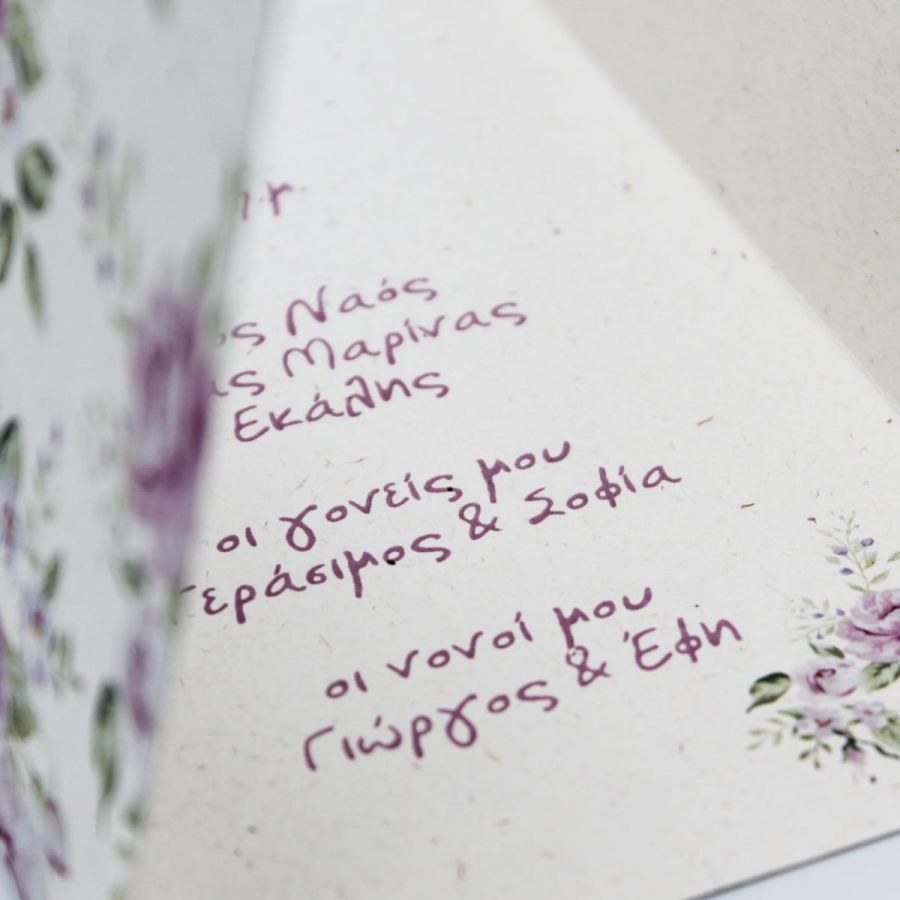 Ναός
Μαρίνας
Εκάλης
οι γονείς μου
Γεράσιμος & Σοφία
οι νονοί μου
Γιώργος & Έφη